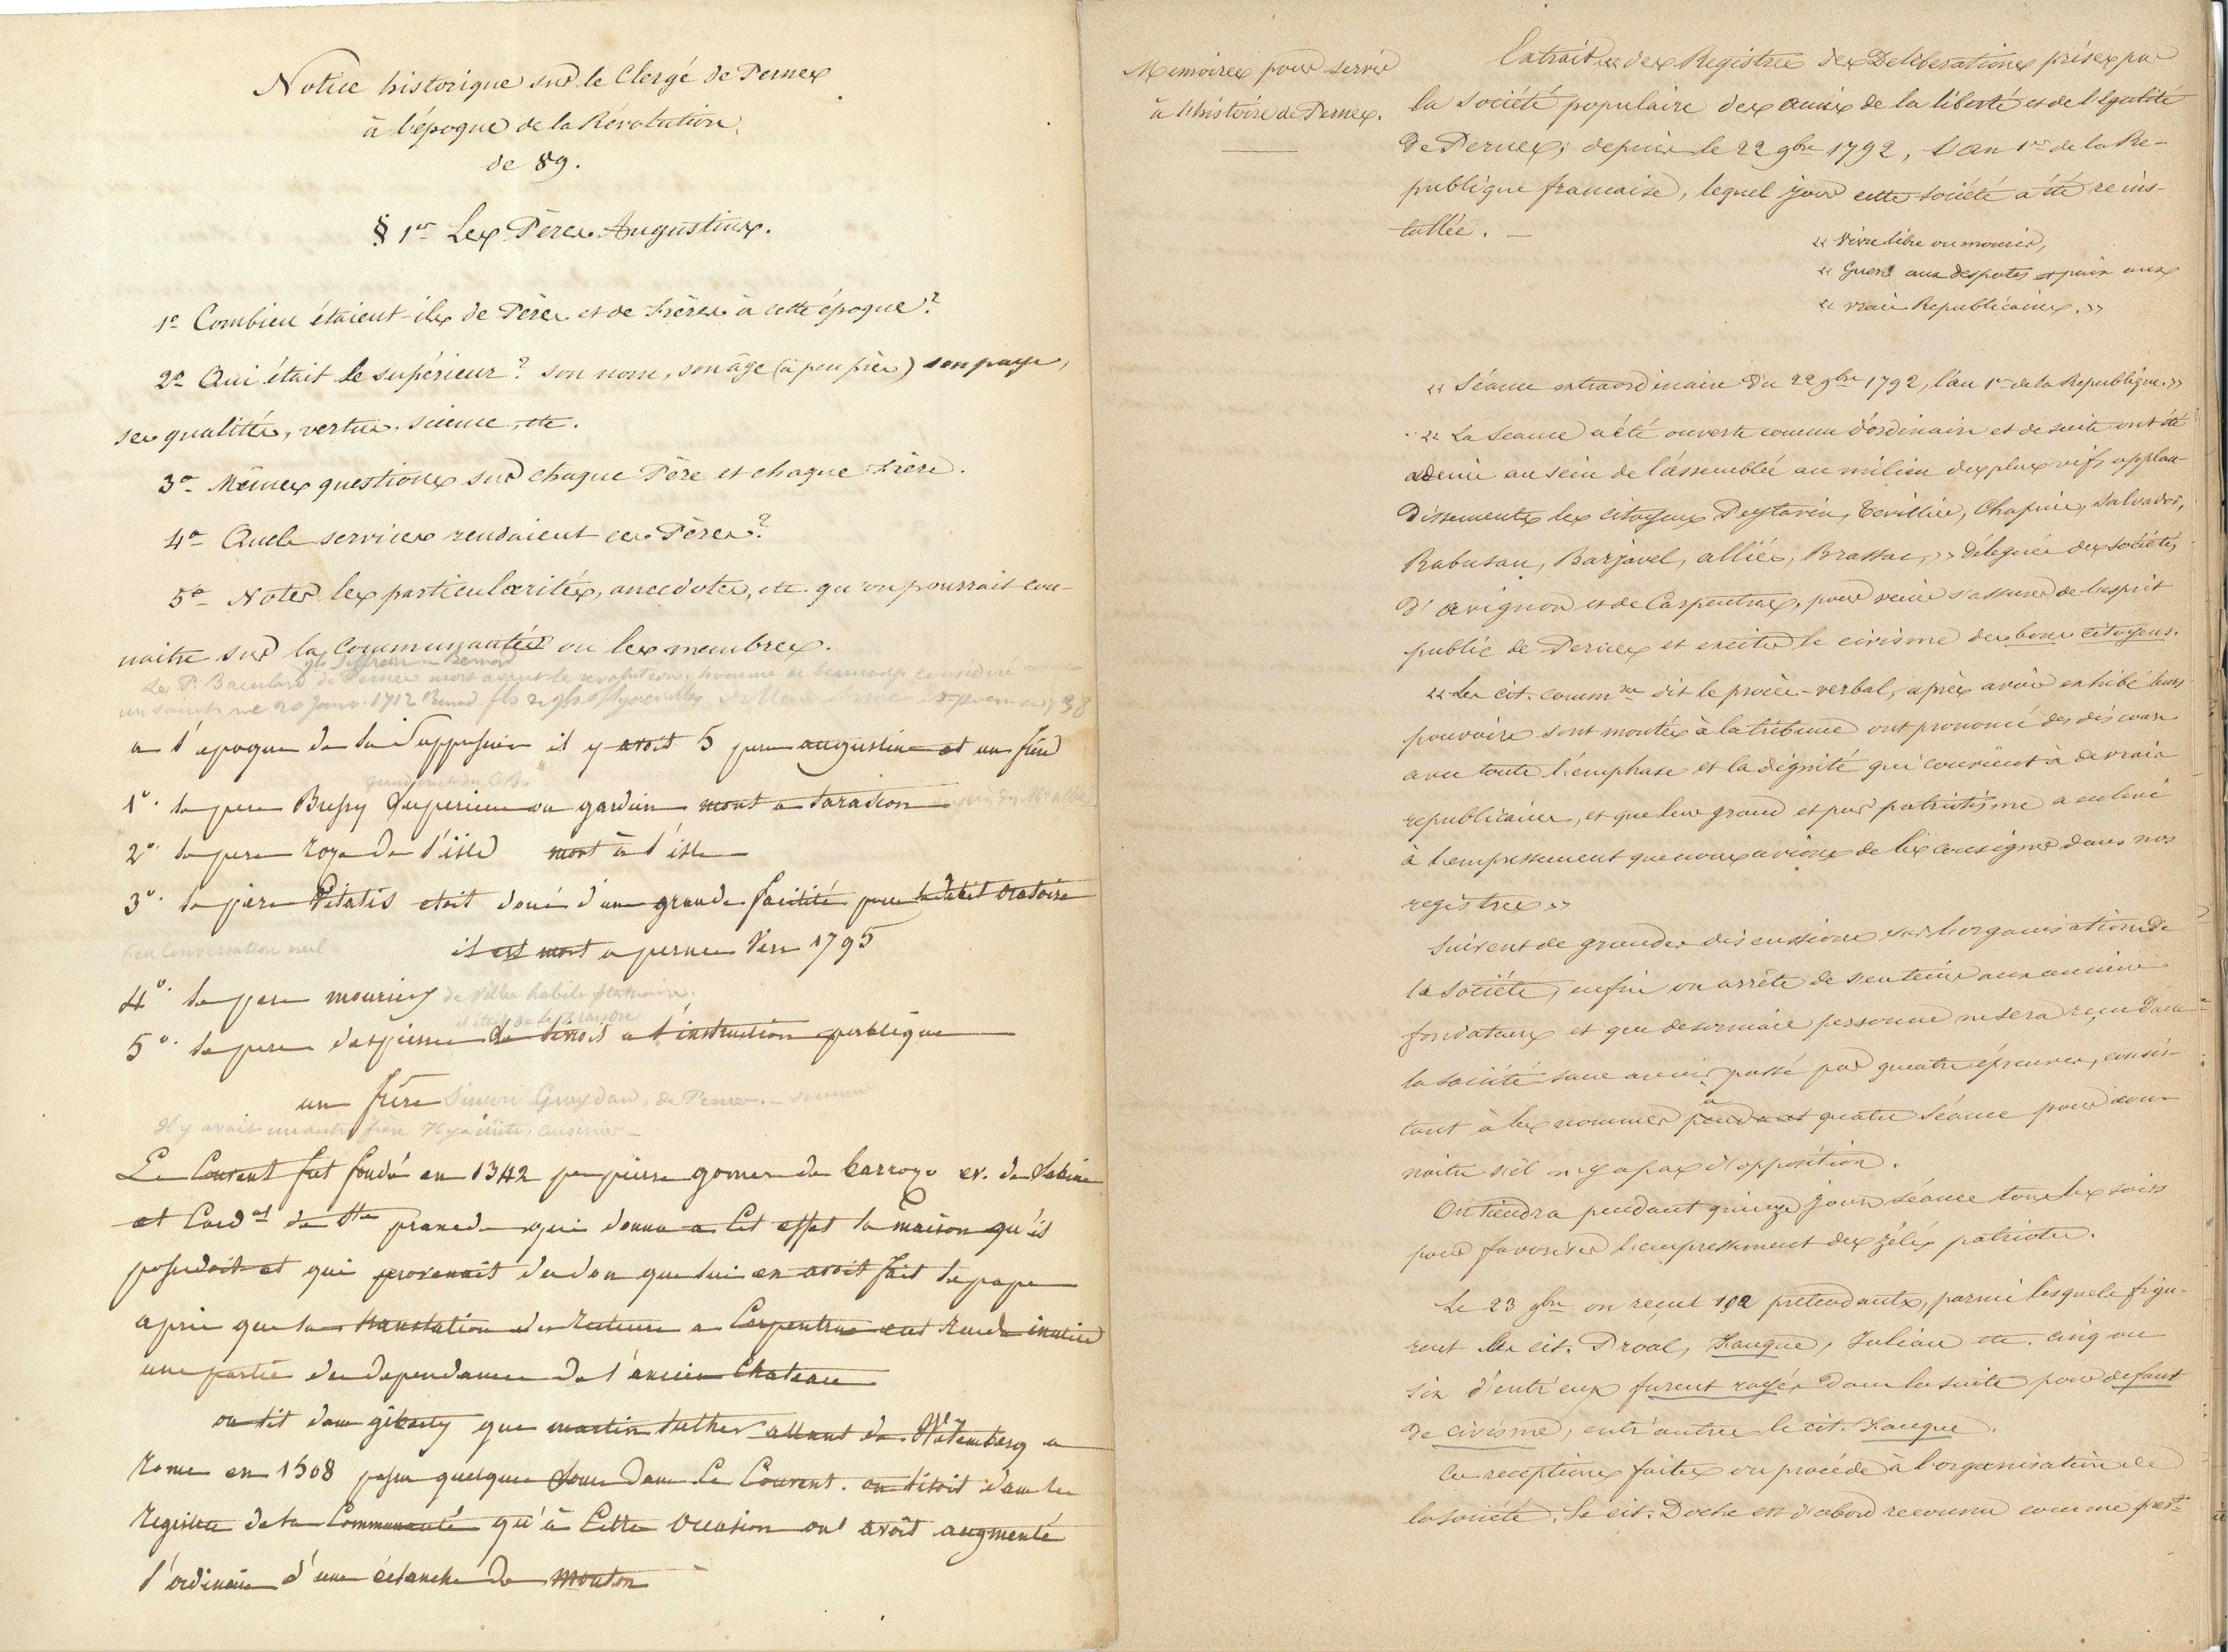 Notice historique sur le Clergé de Pernes
à l'époque de la Révolution
de 89.
§ 1er Les Pères Augustins.
1º Combien étaient-ils de Pères et de Frères à cette époque?
2º Qui était le supérieur? son nom, son âge (à peu près) son pays,
ses qualités, vertus, science, etc.
3º Mêmes questions sur chaque Père et chaque Frère.
4º Quels services rendaient ces Pères?
5º Noter les particularités, anecdotes, etc. qu'on pourrait con-
naitre sur la Communauté ou les membres.
Le P. Baculard de Pernes mort avant la révolution, homme de beaucoup considéré
un saint né 20 janv. 1712
a l'epoque de la Suppression il y avoit 5 peres augustins et un frere
1º. le pere Bussy Superieur ou gardien mort a tarascon
2º. le pere roze de l'isle mort à l'isle
3º. le père Vitalis etoit doué d'une grande facilité pour le debit oratoire
(en conversation nul
il est mort a pernes Vers 1795
4º. le pere mouriès de Villes habile statuaire.
5º. le pere despierre se livroit a l'instruction publique
un frère Siméon Graydan, de Pernes.
Il y avait un autre frère Hyacinthe, cuisinier
Ce Couvent fut fondé en 1342 par pierre gomes de barrozo ev. de Sabine
et Card al de Ste praxede qui donna a Cet effet la maison qu'il
possedoit et qui provenait du don que lui en avoit fait le pape
apres que la translation des Recteurs a Carpentras eut rendu inutile
une partie des dependances de l'ancien Chateau
on lit dans giberty que martin luther allant de Witemberg a
Rome en 1508 passa quelques Jours dans Ce Couvent. on lisoit dans les
Registres de la Communauté qu'à Cette occasion on avoit augmenté
l'ordinaire d'une éclanche de mouton
Memoires pour servir
à l'histoire de Pernes.
Extrait « des Registres des Deliberations prises par
la société populaire des amis de la liberté et de l'égalité
de Pernes; depuis le 22 9bre 1792, l'an 1er de la Re-
publique francaise, lequel jour cette société a été reins-
tallée. —
« Vivre libre ou mourir,
« Guerre aux despotes et paix aux
« vrais Republicains. »
« Séance extraordinaire du 22 9bre 1792, l'an 1er de la Republique. »
« La Seance a été ouverte comme d'ordinaire et de suite ont été
admis au sein de l'assemblée au milieu des plus vifs applau-
dissements les citoyens Peytavin, Tevillier, Chapuis, Salvador,
Rabusau, Barjavel, alliés, Brassac, » délégués des sociétés
d'avignon et de Carpentras, pour venir s'assurer de l'esprit
public de Pernes et exciter le civisme des bons citoyens.
« Les cit. comm res dit le procès-verbal, après avoir exhibé leurs
pouvoirs sont montés à la tribune ont prononcé des discours
avec toute l'emphase et la dignité qui convient à de vrais
republicains, et que leur grand et pur patriotisme a enlevé
à l'empressement que nous avions de les consigner dans nos
registres »
Suivent de grandes discussions sur l'organisation de
la société, enfin on arrête de s'en tenir aux anciens
fondateurs et que desormais personne ne sera reçu dans
la société sans avoir passé par quatre épreuves, consis-
tant à les nommer pendant quatre séances pour con-
naitre s'il n'y a pas d'opposition.
On tiendra pendant quinze jours séance tous les soirs
pour favoriser l'empressement des zélés patriotes.
Le 23 9bre on reçut 102 pretendants, parmi lesquels figu-
rent les cit. Proal, Fauque, Julian etc. cinq ou
six d'entr'eux furent rayés dans la suite pour defaut
de civisme, entr'autres le cit. Fauque.
Ces receptions faites on procède à l'organisation de
la société. Le cit. Doche est d'abord reconnu comme prest